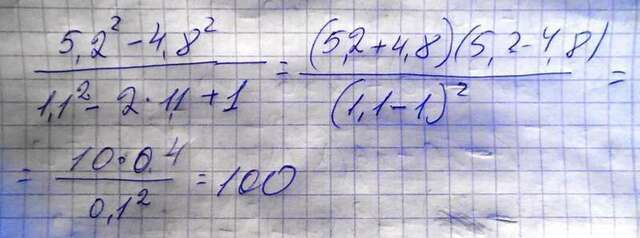 (5,2² - 4,8²) / (1,1² - 2 · 1,1 + 1) = (5,2 + 4,8)(5,2 - 4,8) / (1,1 - 1)² =
= (10 · 0,4) / 0,1² = 100